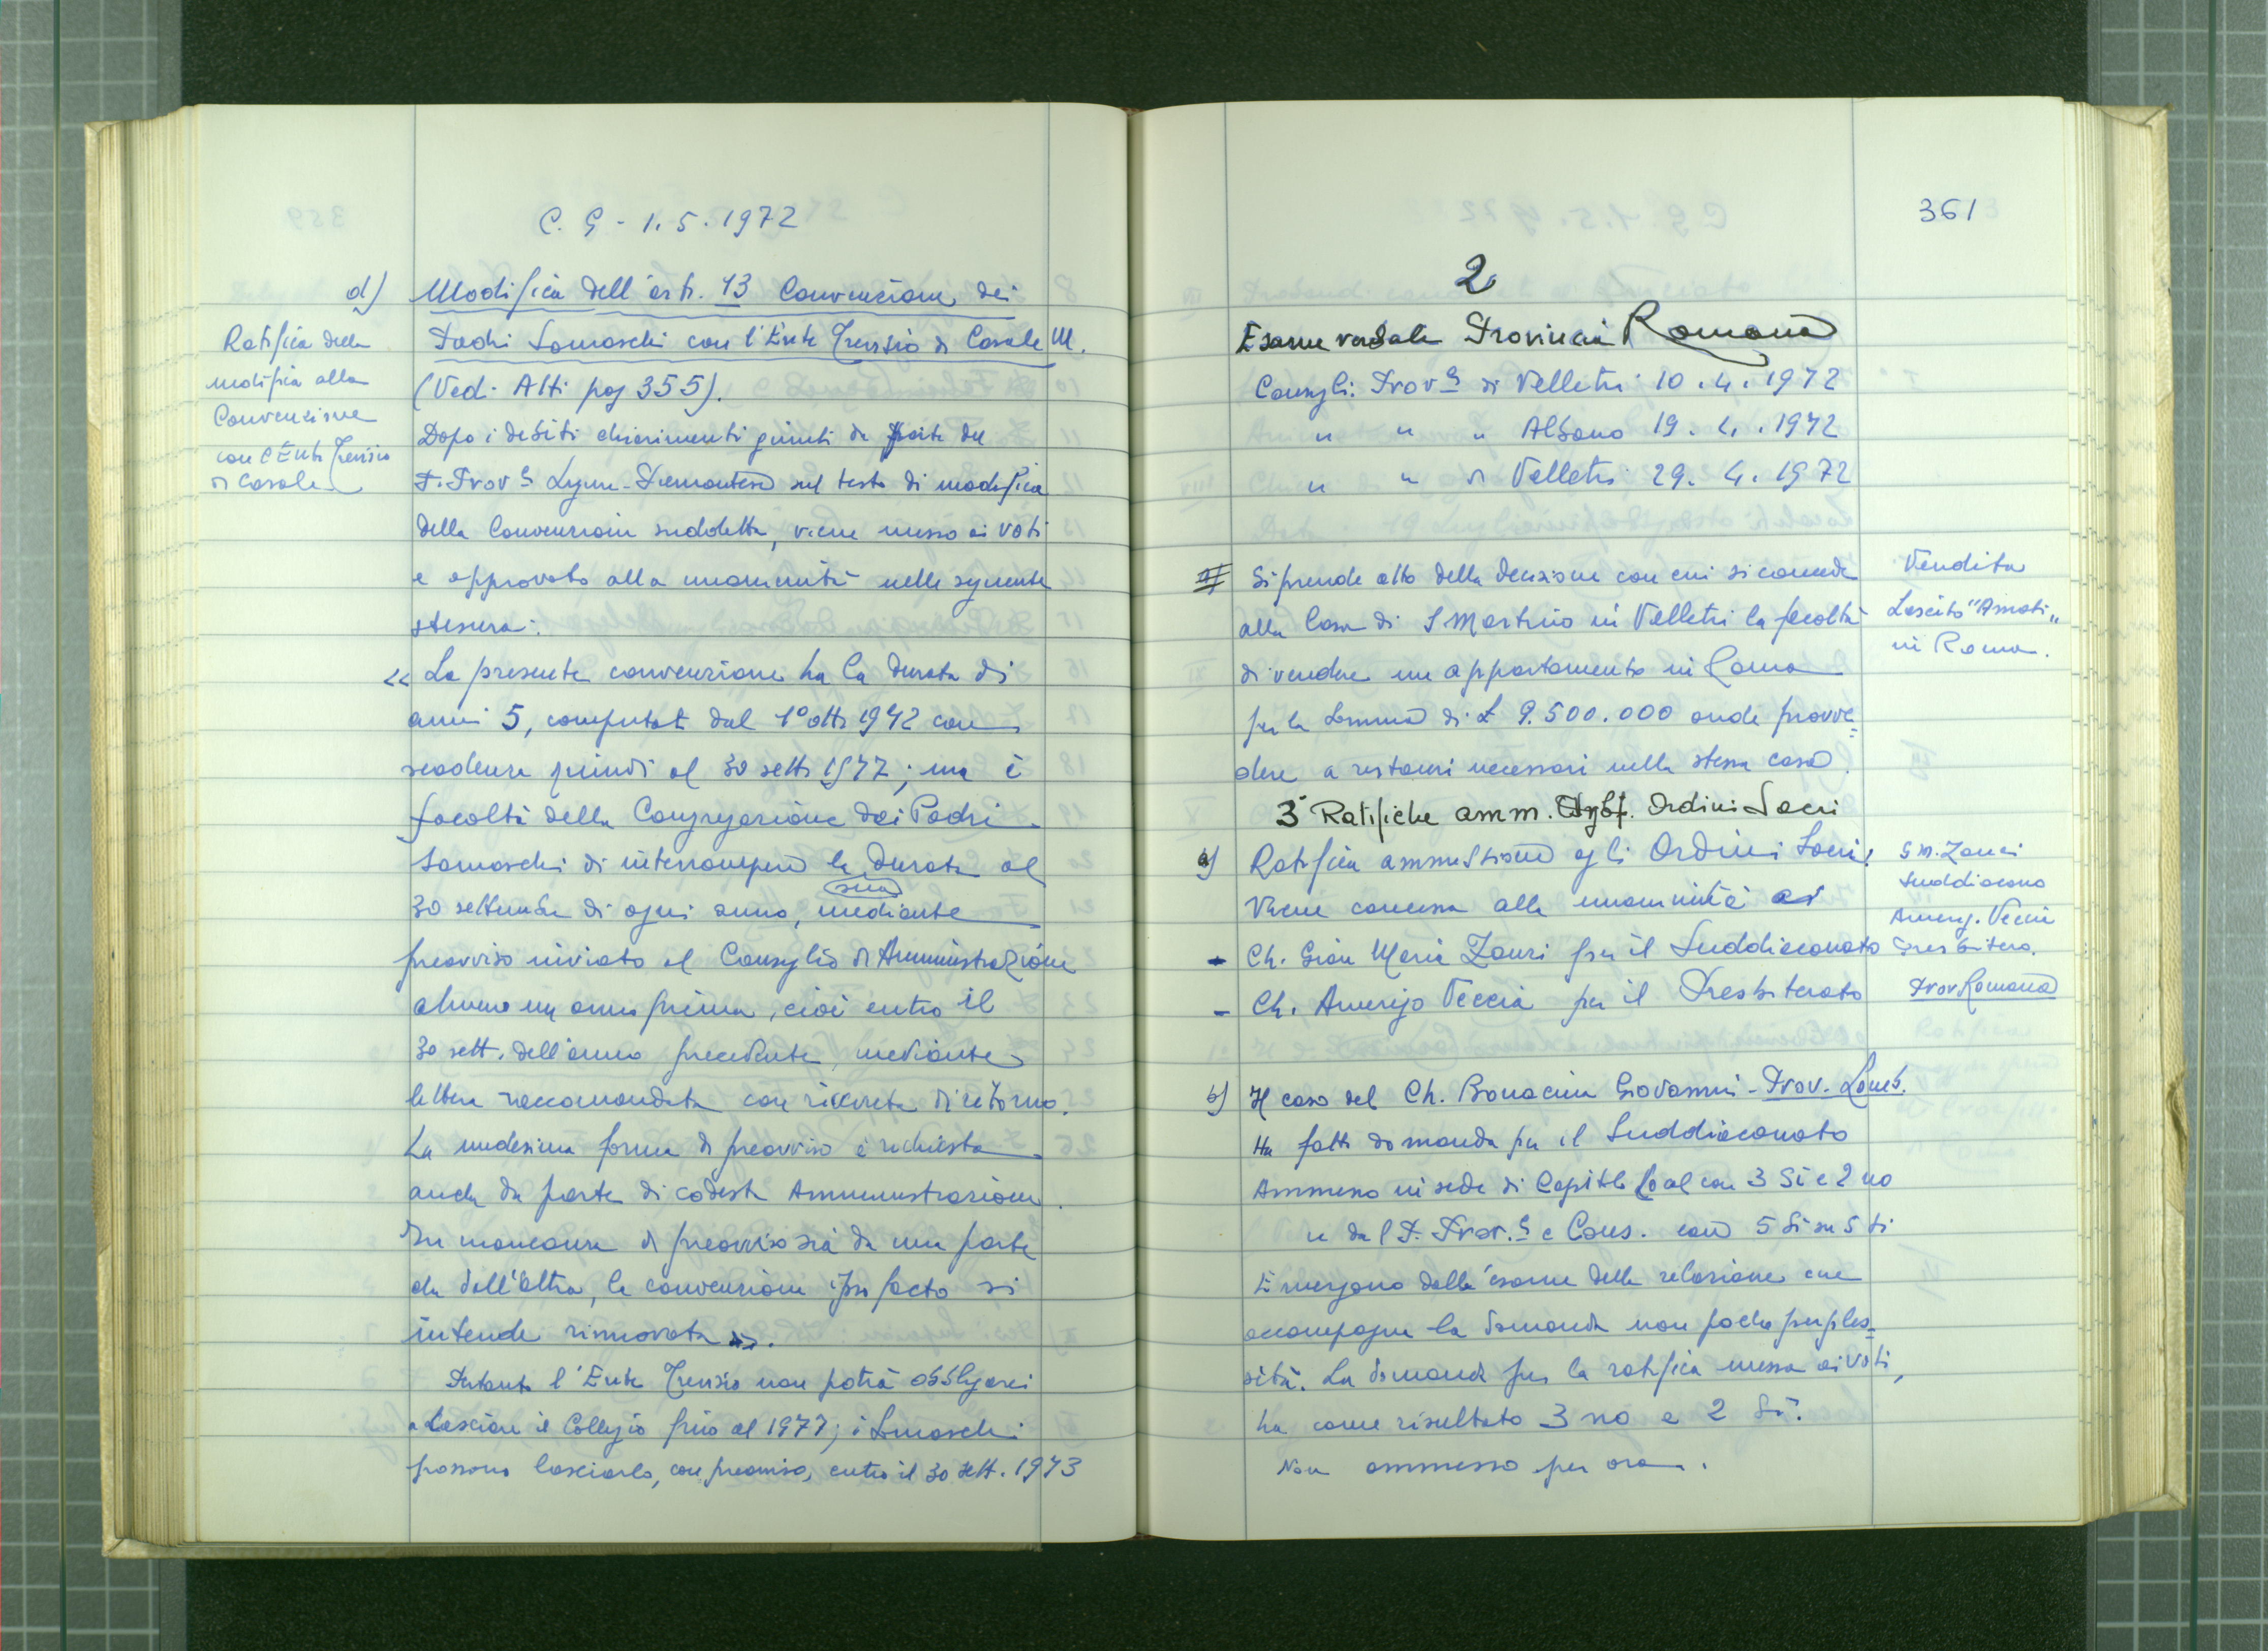 C. G - 1. 5. 1972
d) Modifica dell'art. 13 Convenzione dei
Padri Somaschi con l'Ente Trevisio di Casale M.
Ratifica della
modifica alla
Convenzione
con l'Ente Trevisio
di Casale
(Vedi Atti pag 355).
Dopo i debiti chiarimenti giunti da parte del
P. Prov.le Ligure-Piemontese sul testo di modifica
della Convenzione suddetta, viene messo ai voti
e approvato alla unanimità nella seguente
stesura:
<< La presente convenzione ha la durata di
anni 5, computati dal 1° ott. 1972 con
scadenza quindi al 30 sett. 1977; ma è
facoltà della Congregazione dei Padri
Somaschi di interrompere la durata al
30 settembre di ogni anno, mediante
sua
preavviso inviato al Consiglio di Amministrazione
almeno un anno prima, cioè entro il
30 sett. dell'anno precedente mediante
lettera raccomandata con ricevuta di ritorno.
La medesima forma di preavviso è richiesta
anche da parte di codesta Amministrazione.
In mancanza di preavviso sia da una parte
che dall'altra, la convenzione ipso facto si
intende rinnovata >>.
Pertanto l'Ente Trevisio non potrà obbligarci
a lasciare il Collegio fino al 1977; i Somaschi
possono lasciarlo, con preavviso, entro il 30 sett. 1973
361
2
Esame verbale Provincia Romana
Consigli: Prov.le di Velletri 10. 4. 1972
" " " Albano 19. 4. 1972
" " di Velletri 29. 4. 1972
Si prende atto della decisione con cui si concede
alla Casa di S Martino in Velletri la facoltà
di vendere un appartamento in Roma
per la somma di £ 9.500.000 onde provve=
dere a restauri necessari nella stessa casa.
Vendita
Lascito "Amati"
in Roma.
3° Ratifiche amm. Ordini Sacri
a) Ratifica ammissione agli Ordini Sacri:
Viene concessa alla unanimità ai
- Ch. Gian Maria Zauri per il Suddiaconato
- Ch. Amerigo Veccia per il Presbiterato
G M. Zauri
Suddiacono
Amerig. Veccia
Presbitero.
Prov Romana
b) Il caso del Ch. Bonacina Giovanni - Prov. Lomb.
Ha fatto domanda per il Suddiaconato
Ammesso in sede di Capitolo Local con 3 Si e 2 no
e dal P. Prov.le e Cons. con 5 Si su 5 ti
Emergono dalla esame della relazione che
accompagna la domanda non poche perples=
sità. La domanda per la ratifica messa ai voti,
ha come risultato 3 no e 2 Si.
Non ammesso per ora.